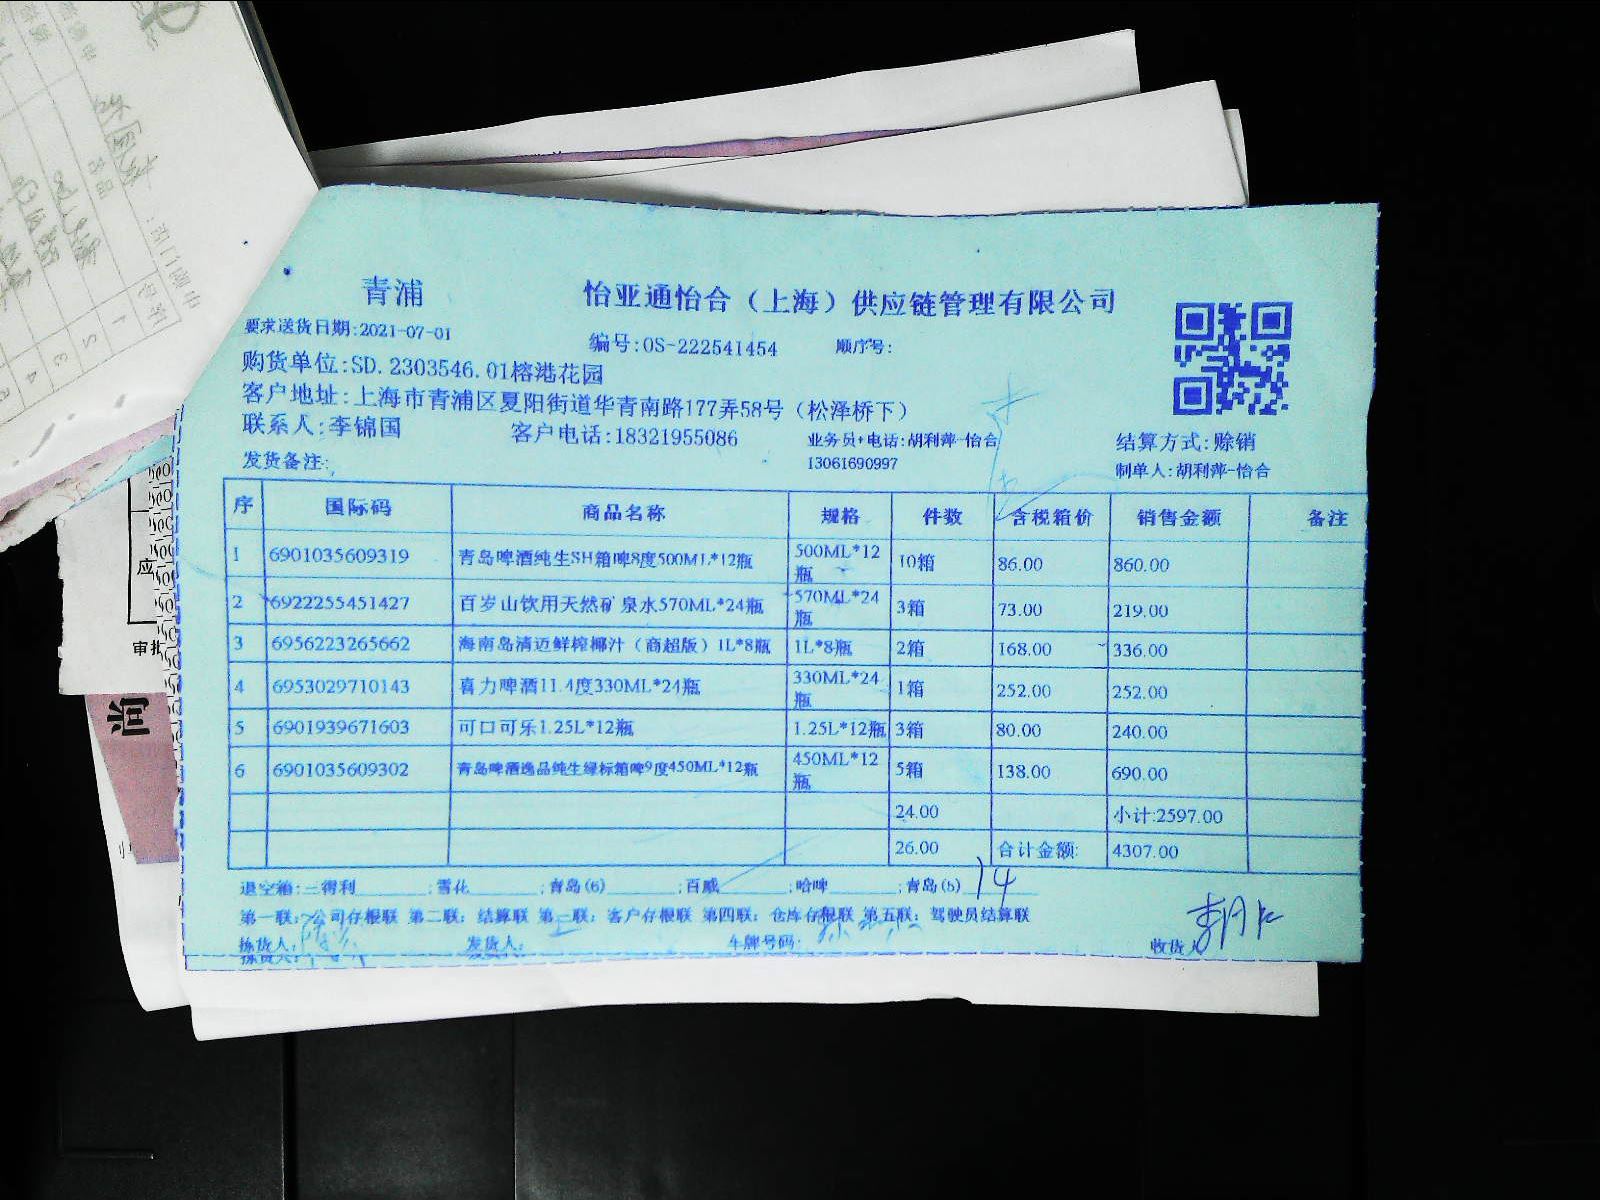 青浦
怡亚通怡合（上海）供应链管理有限公司
要求送货日期:2021-07-01
编号:OS-222541454
顺序号:
购货单位:SD.2303546.01榕港花园
客户地址:上海市青浦区夏阳街道华青南路177弄58号（松泽桥下）
联系人:李锦国
客户电话:18321955086
业务员+电话:胡利萍-怡合
13061690997
结算方式:赊销
制单人:胡利萍-怡合
发货备注:
序 国际码 商品名称 规格 件数 含税箱价 销售金额 备注
1 6901035609319 青岛啤酒纯生SH箱啤8度500ML*12瓶 500ML*12瓶 10箱 86.00 860.00
2 6922255451427 百岁山饮用天然矿泉水570ML*24瓶 570ML*24瓶 3箱 73.00 219.00
3 6956223265662 海南岛清迈鲜榨椰汁（商超版）1L*8瓶 1L*8瓶 2箱 168.00 336.00
4 6953029710143 喜力啤酒11.4度330ML*24瓶 330ML*24瓶 1箱 252.00 252.00
5 6901939671603 可口可乐1.25L*12瓶 1.25L*12瓶 3箱 80.00 240.00
6 6901035609302 青岛啤酒逸品纯生绿标箱啤9度450ML*12瓶 450ML*12瓶 5箱 138.00 690.00
24.00 小计:2597.00
26.00 合计金额: 4307.00
退空箱:三得利 ;雪花 ;青岛(6) ;百威 ;哈啤 ;青岛(b) 14
第一联:公司存根联 第二联:结算联 第三联:客户存根联 第四联:仓库存根联 第五联:驾驶员结算联
拣货人: 发货人: 车牌号码: 收货人
应
审批
尚